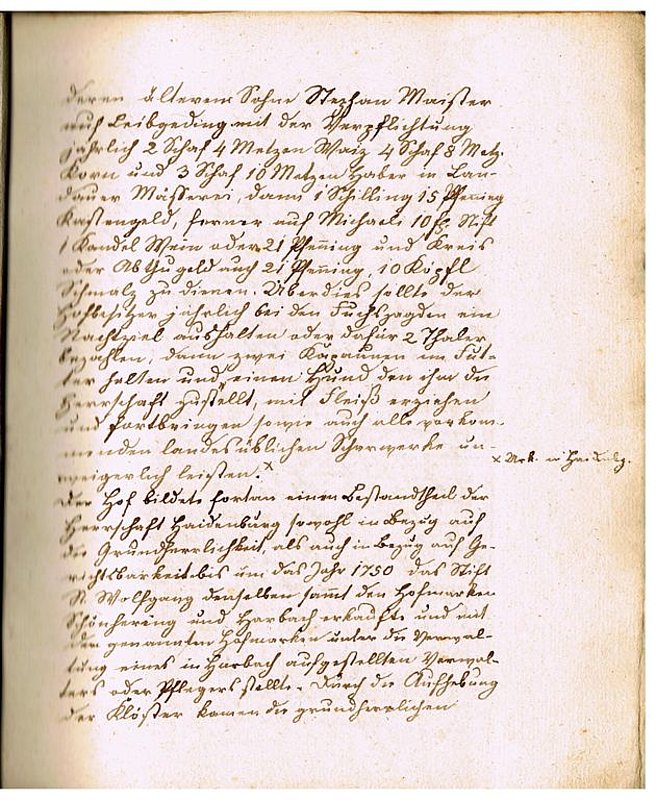 deren älterem Sohne Stephan Maister
auf Leibgeding mit der Verpflichtung
jährlich 2 Schaf 4 Metzen Waiz 4 Schaf 8 Metz.
Korn und 3 Schaf 10 Metzen Haber in Lan-
dauer Mässerei, dann 1 Schilling 15 Pfenning
Kastengeld, ferner auf Michaeli 10 Stift
1 Kandel Wein oder 21 Pfenning und Kreis
oder auch 21 Pfenning, 10 Köpfl
Schmalz zu dienen. Überdies sollte der
Hofbesitzer jährlich bei den Fuchsjagden ein
Nachtziel aushalten oder dafür 2 Thaler
bezahlen, dann zwei Kapaunen im Fut-
ter halten und einen Hund den ihm die
Herrschaft zustellt, mit Fleiß erziehen
und fortbringen sowie auch alle vorkom-
menden landesüblichen Scharwerke un-
weigerlich leisten. x
x Urk. in
Der Hof bildete fortan einen Bestandtheil der
Herrschaft Haidenburg sowohl in Bezug auf
die Grundherrlichkeit, als auch in Bezug auf Ge-
richtsbarkeit bis um das Jahr 1750 das Stift
St. Wolfgang denselben sammt den Hofmarken
Schönhering und Harbach erkaufte und mit
den genannten Hofmarken unter die Verwal-
tung eines in Harbach aufgestellten Verwal-
ters oder Pflegers stellte. Durch die Aufhebung
der Klöster kamen die grundherrlichen